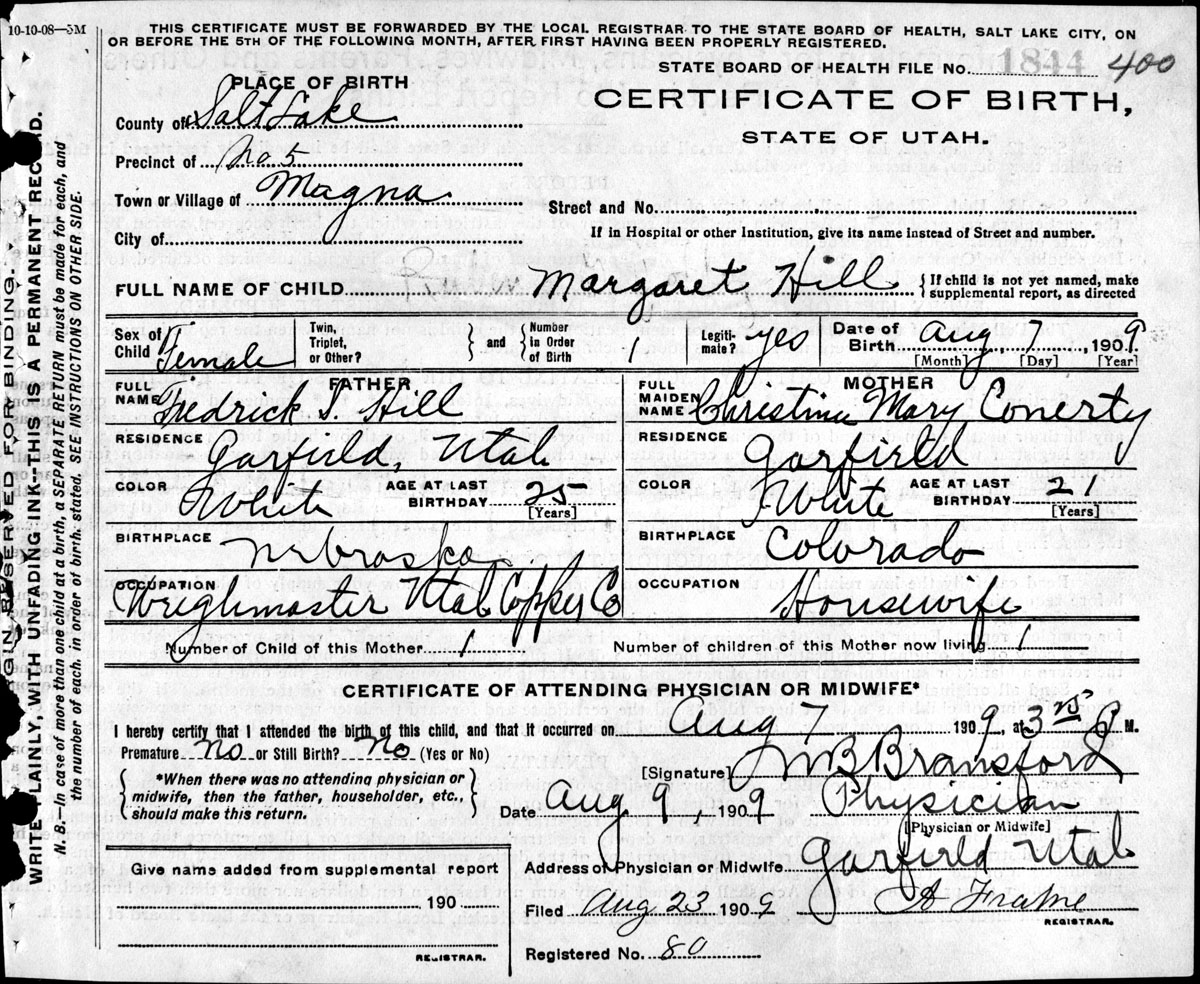 10-10-08—3M
THIS CERTIFICATE MUST BE FORWARDED BY THE LOCAL REGISTRAR TO THE STATE BOARD OF HEALTH, SALT LAKE CITY, ON
OR BEFORE THE 5TH OF THE FOLLOWING MONTH, AFTER FIRST HAVING BEEN PROPERLY REGISTERED.
STATE BOARD OF HEALTH FILE No. 1844 400
PLACE OF BIRTH
CERTIFICATE OF BIRTH,
STATE OF UTAH.
County of Salt Lake
Precinct of No 5
Town or Village of Magna
Street and No.
City of
If in Hospital or other Institution, give its name instead of Street and number.
FULL NAME OF CHILD Margaret Hill { If child is not yet named, make
supplemental report, as directed
Sex of Child Female Twin, Triplet, or Other? } and { Number in Order of Birth 1 Legitimate? yes Date of Birth Aug, 7, 1909
[Month] [Day] [Year]
FATHER MOTHER
FULL NAME Fredrick S. Hill FULL MAIDEN NAME Christina Mary Conerty
RESIDENCE Garfield, Utah RESIDENCE Garfield
COLOR White AGE AT LAST BIRTHDAY 25 [Years] COLOR White AGE AT LAST BIRTHDAY 21 [Years]
BIRTHPLACE Nebraska BIRTHPLACE Colorado
OCCUPATION Weighmaster Utah Copper Co OCCUPATION Housewife
Number of Child of this Mother 1 Number of children of this Mother now living 1
CERTIFICATE OF ATTENDING PHYSICIAN OR MIDWIFE*
I hereby certify that I attended the birth of this child, and that it occurred on Aug 7 1909, at 3 P M.
Premature No or Still Birth? No (Yes or No)
{ *When there was no attending physician or
midwife, then the father, householder, etc.,
should make this return. }
[Signature] M B Bransford
Date Aug 9, 1909 Physician
[Physician or Midwife]
Give name added from supplemental report
190
REGISTRAR.
Address of Physician or Midwife Garfield Utah
Filed Aug 23 1909 A Frame
REGISTRAR.
Registered No. 80
GIN RESERVED FOR BINDING.
WRITE PLAINLY, WITH UNFADING INK—THIS IS A PERMANENT RECORD.
N. B.—In case of more than one child at a birth, a SEPARATE RETURN must be made for each, and
the number of each, in order of birth, stated. SEE INSTRUCTIONS ON OTHER SIDE.